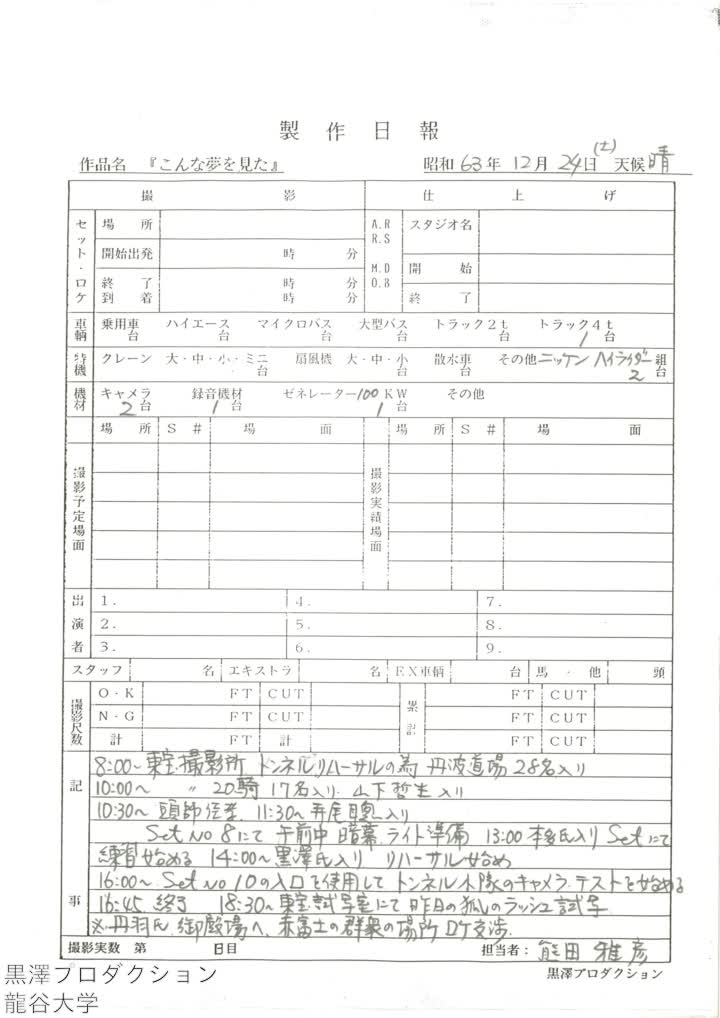 製作日報
作品名 『こんな夢を見た』 昭和63年12月24日(土) 天候 晴
撮影 仕上げ
セット・ロケ 場所 A.R R.S スタジオ名
開始出発 時 分 M.D O.B 開始
終了 時 分 終了
到着 時 分
車輌 乗用車 台 ハイエース 台 マイクロバス 台 大型バス 台 トラック2t 台 トラック4t 1台
特機 クレーン 大・中・小・ミニ 台 扇風機 大・中・小 台 散水車 台 その他 ニッケン ハイライダー 2 組 台
機材 キャメラ 2台 録音機材 1台 ゼネレーター100KW 1台 その他
場所 S# 場面 場所 S# 場面
撮影予定場面 撮影実績場面
出演者 1. 4. 7.
2. 5. 8.
3. 6. 9.
スタッフ 名 エキストラ 名 EX車輌 台 馬・他 頭
撮影尺数 O・K FT CUT 累計 FT CUT
N・G FT CUT FT CUT
計 FT 計 FT CUT
記事
8:00〜東宝撮影所 トンネルリハーサルの為 丹波道場 28名入り
10:00〜 〃 20騎 17名入り. 山下哲生入り
10:30〜 頭師佳孝. 11:30〜 入り
Set No 8にて 午前中 暗幕.ライト準備 13:00 本多氏入り Setにて
練習始める 14:00〜黒澤氏入り リハーサル始め
16:00〜 Set No 10の入口を使用して トンネル小隊のキャメラ.テストを始める
16:45 終了 18:30〜東宝試写室にて 昨日の狐のラッシュ試写
※.丹羽氏.御殿場へ、赤富士の群衆の場所 ロケ交渉.
撮影実数 第 日目 担当者: 熊田雅彦
黒澤プロダクション
黒澤プロダクション
龍谷大学